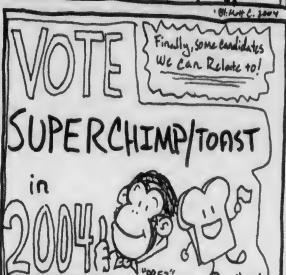 VOTE
Finally, some candidates
We Can Relate to!
SUPERCHIMP/TOAST
in
2004
"PREZ"